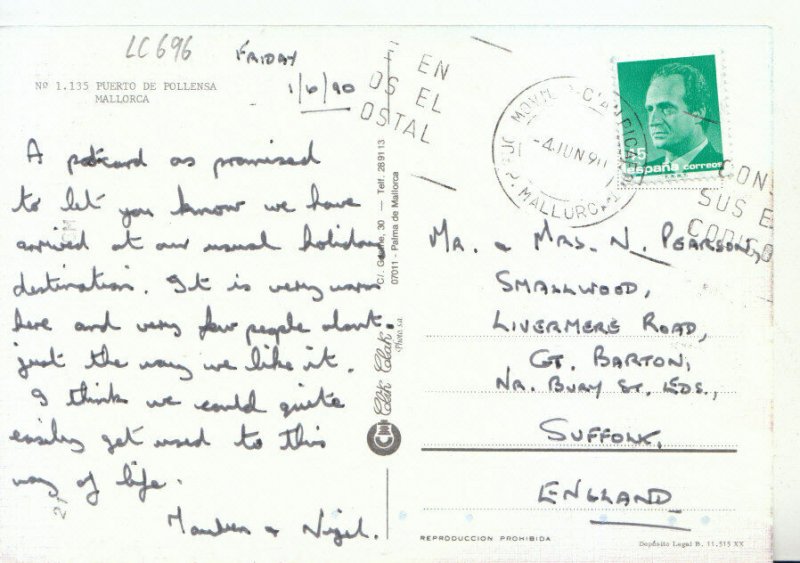 LC696
FRIDAY
1/6/90
Nº 1.135 PUERTO DE POLLENSA
MALLORCA
A postcard as promised
to let you know we have
arrived at our usual holiday
destination. It is very warm
here and very few people about.
just the way we like it.
I think we could quite
easily get used to this
way of life.
Maureen & Nigel.
07011 - Palma de Mallorca
Telf. 289113
Clik Clak
Photo, s.a.
EN
OS EL
OSTAL
-4 JUN 90
MALLORCA
españa correos
CON
SUS E
CODIGO
MR. & MRS. N. PEARSON,
SMALLWOOD,
LIVERMERE ROAD,
GT. BARTON,
NR. BURY ST. EDS.,
SUFFOLK,
ENGLAND
REPRODUCCION PROHIBIDA
Depósito Legal B. 11.515 XX